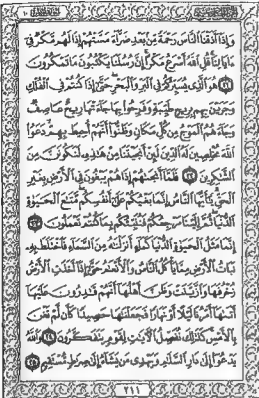 وَإِذَا أَذَقْنَا النَّاسَ رَحْمَةً مِنْ بَعْدِ ضَرَّاءَ مَسَّتْهُمْ إِذَا لَهُمْ مَكْرٌ فِي
ءَايَاتِنَا قُلِ اللَّهُ أَسْرَعُ مَكْرًا إِنَّ رُسُلَنَا يَكْتُبُونَ مَا تَمْكُرُونَ
٢١ هُوَ الَّذِي يُسَيِّرُكُمْ فِي الْبَرِّ وَالْبَحْرِ حَتَّى إِذَا كُنْتُمْ فِي الْفُلْكِ
وَجَرَيْنَ بِهِمْ بِرِيحٍ طَيِّبَةٍ وَفَرِحُوا بِهَا جَاءَتْهَا رِيحٌ عَاصِفٌ
وَجَاءَهُمُ الْمَوْجُ مِنْ كُلِّ مَكَانٍ وَظَنُّوا أَنَّهُمْ أُحِيطَ بِهِمْ دَعَوُا
اللَّهَ مُخْلِصِينَ لَهُ الدِّينَ لَئِنْ أَنْجَيْتَنَا مِنْ هَذِهِ لَنَكُونَنَّ مِنَ
الشَّاكِرِينَ ٢٢ فَلَمَّا أَنْجَاهُمْ إِذَا هُمْ يَبْغُونَ فِي الْأَرْضِ بِغَيْرِ
الْحَقِّ يَا أَيُّهَا النَّاسُ إِنَّمَا بَغْيُكُمْ عَلَى أَنْفُسِكُمْ مَتَاعَ الْحَيَوةِ
الدُّنْيَا ثُمَّ إِلَيْنَا مَرْجِعُكُمْ فَنُنَبِّئُكُمْ بِمَا كُنْتُمْ تَعْمَلُونَ ٢٣
إِنَّمَا مَثَلُ الْحَيَوةِ الدُّنْيَا كَمَاءٍ أَنْزَلْنَاهُ مِنَ السَّمَاءِ فَاخْتَلَطَ بِهِ
نَبَاتُ الْأَرْضِ مِمَّا يَأْكُلُ النَّاسُ وَالْأَنْعَامُ حَتَّى إِذَا أَخَذَتِ الْأَرْضُ
زُخْرُفَهَا وَازَّيَّنَتْ وَظَنَّ أَهْلُهَا أَنَّهُمْ قَادِرُونَ عَلَيْهَا
أَتَاهَا أَمْرُنَا لَيْلًا أَوْ نَهَارًا فَجَعَلْنَاهَا حَصِيدًا كَأَنْ لَمْ تَغْنَ
بِالْأَمْسِ كَذَلِكَ نُفَصِّلُ الْآيَاتِ لِقَوْمٍ يَتَفَكَّرُونَ ٢٤ وَاللَّهُ
يَدْعُوا إِلَى دَارِ السَّلَامِ وَيَهْدِي مَنْ يَشَاءُ إِلَى صِرَاطٍ مُسْتَقِيمٍ ٢٥
٢١١